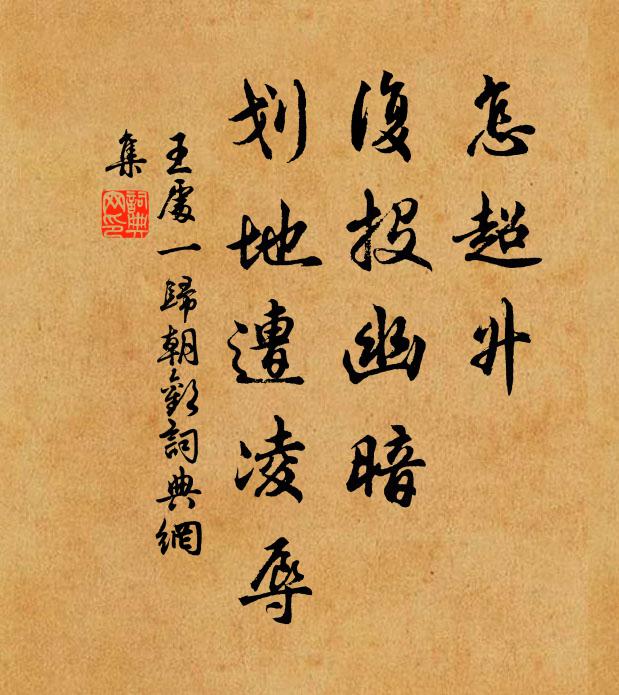 怎超升
復投幽暗
划地遭凌辱
王處一歸朝歡詞典網
集
詞典网印